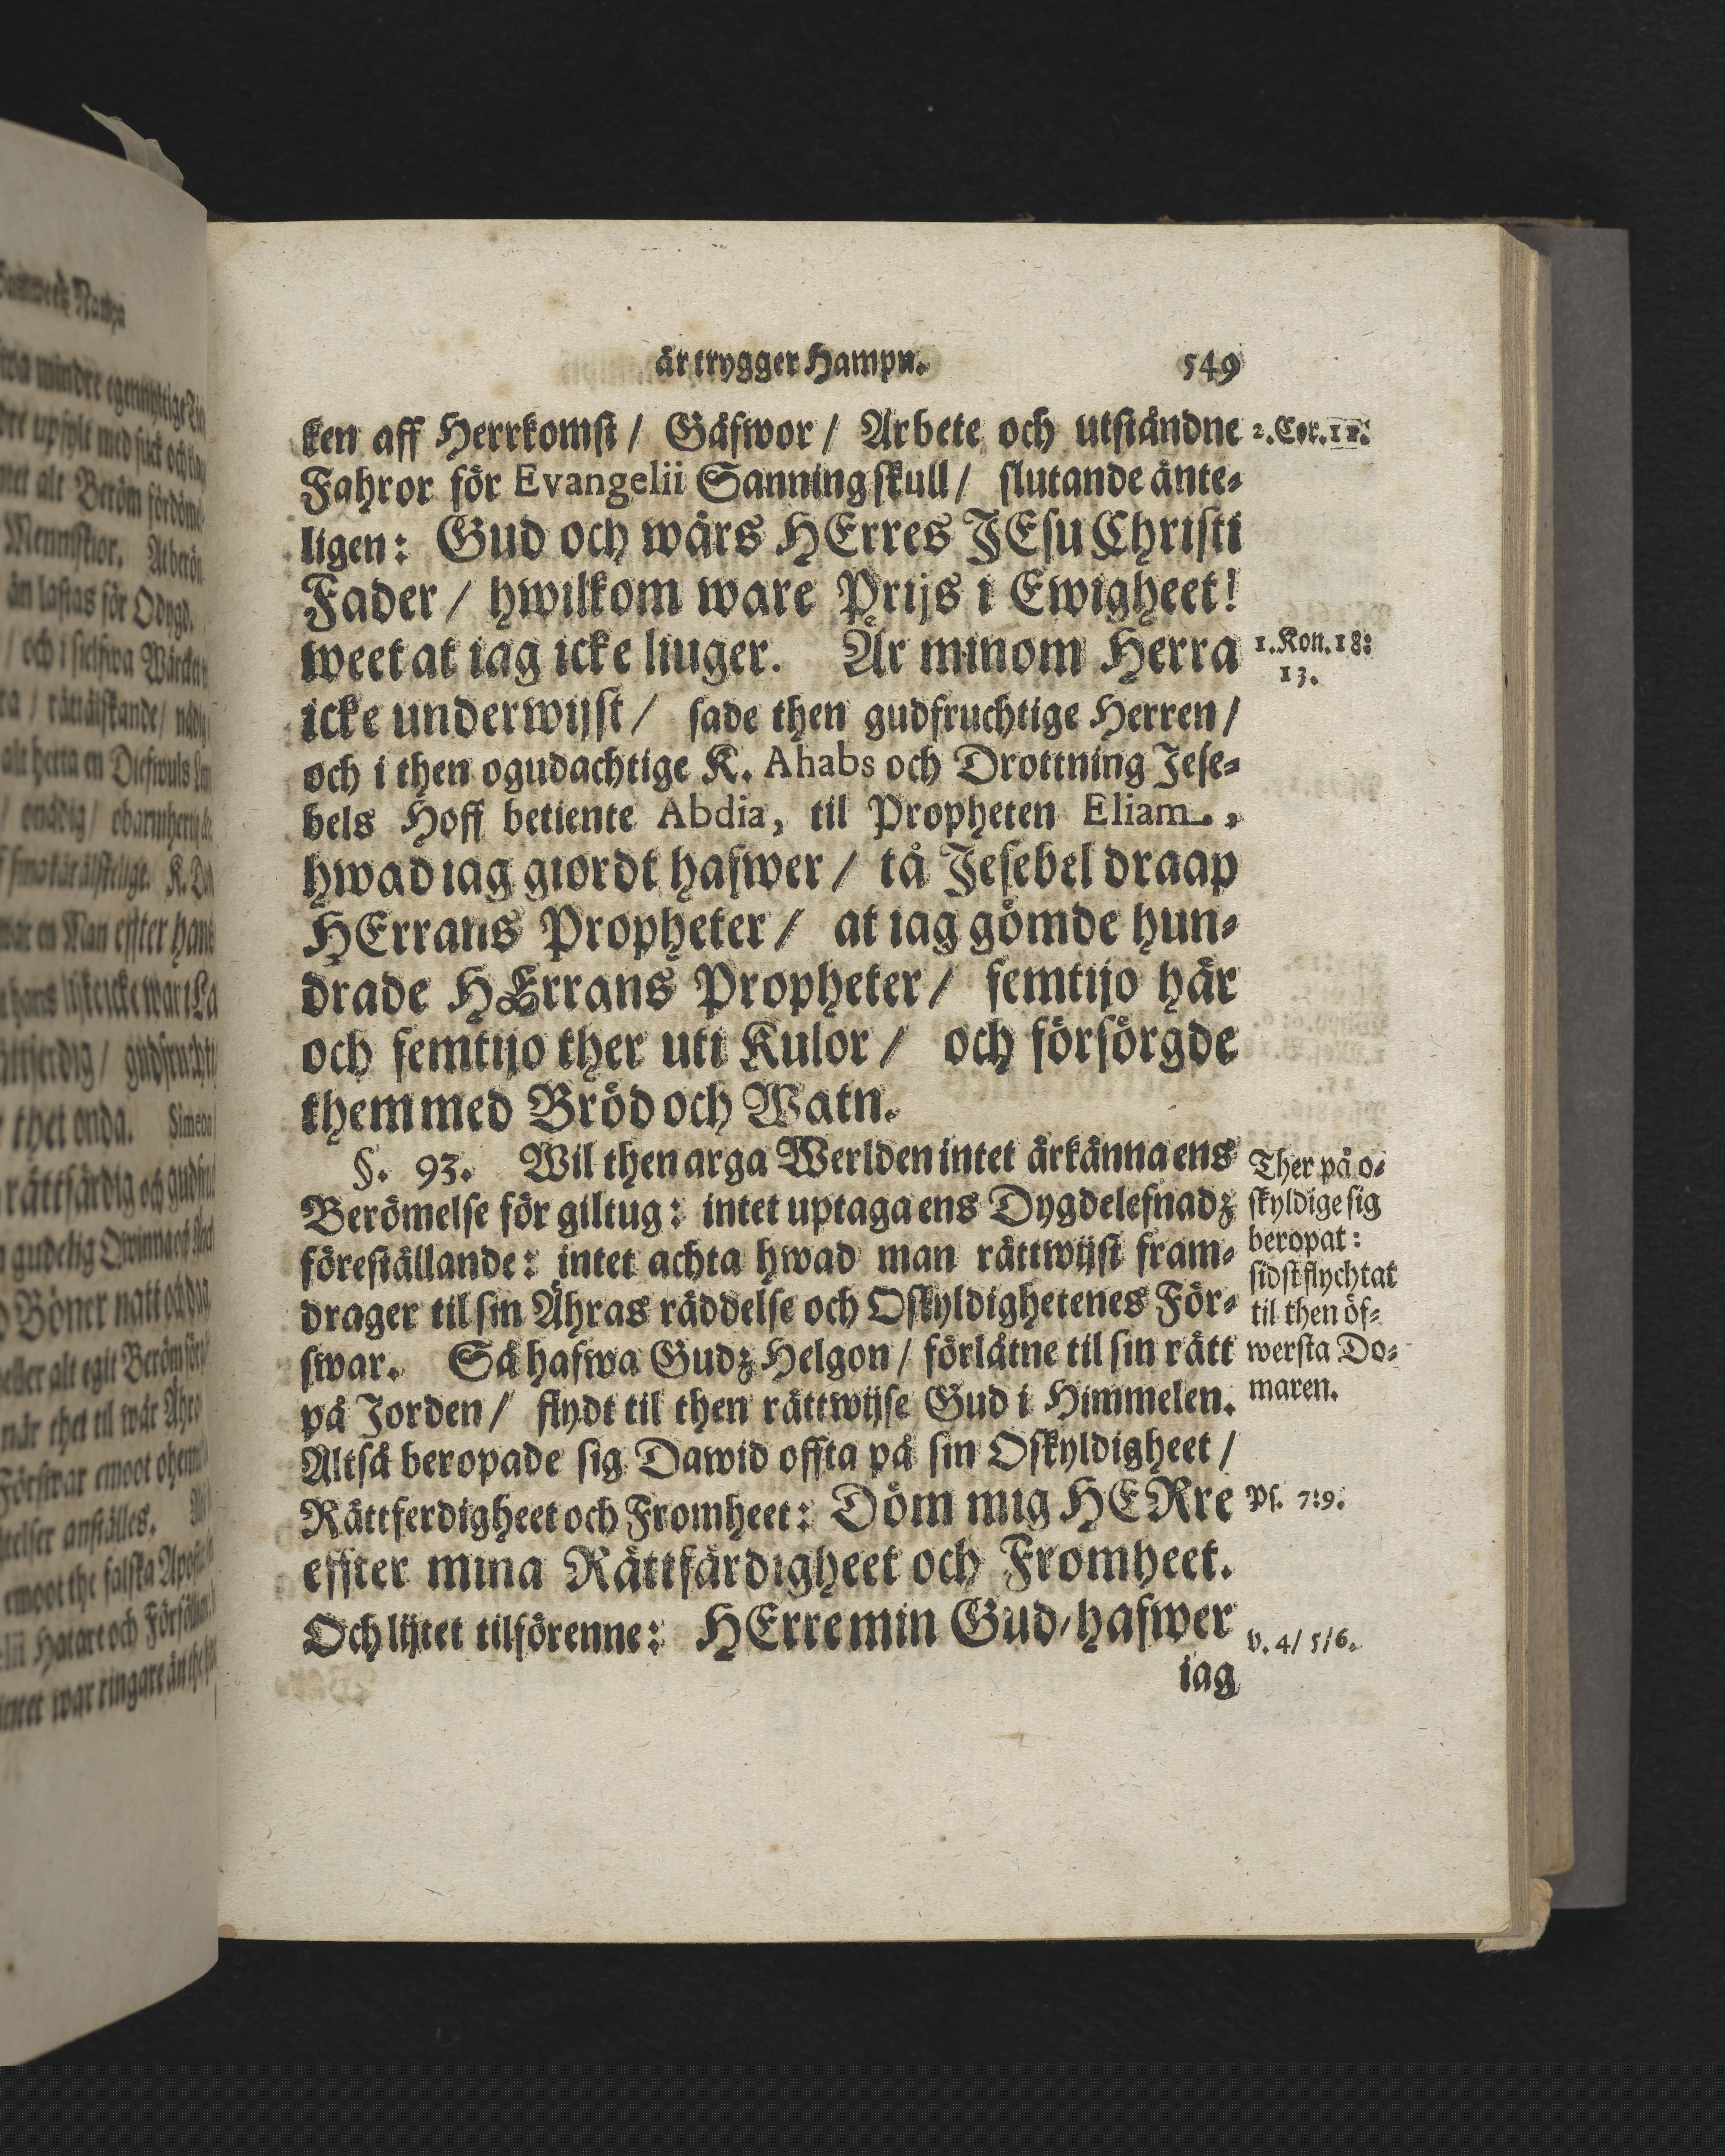 är trygger Hampn. 549
ken aff Herrkomst / Gåfwor / Arbete och utståndne
Fahror för Evangelii Sanning skull / slutande änte-
ligen: Gud och wårs HErres JEsu Christi
Fader / hwilkom ware Prijs i Ewigheet!
weet at iag icke liuger. Är minom Herra
icke underwijst / sade then gudfruchtige Herren /
och i then ogudachtige K. Ahabs och Drottning Jese-
bels Hoff betiente Abdia, til Propheten Eliam.,
hwad iag giordt hafwer / tå Jesebel draap
HErrans Propheter / at iag gömde hun-
drade HErrans Propheter / femtijo här
och femtijo ther uti Kulor / och försörgde
them med Bröd och Watn.
§. 93. Wil then arga Werlden intet ärkänna ens
Berömelse för giltug: intet uptaga ens Dygdelefnadz
föreställande: intet achta hwad man rättwijst fram-
drager til sin Ähras räddelse och Oskyldighetenes För-
swar. Så hafwa Gudz Helgon / förlåtne til sin rätt
på Jorden / flydt til then rättwijse Gud i Himmelen.
Altså beropade sig Dawid offta på sin Oskyldigheet /
Rättferdigheet och Fromheet: Döm mig HERre
effter mina Rättfärdigheet och Fromheet.
Och lijtet tilförenne: HErre min Gud / hafwer
iag
2. Cor. 11.
1. Kon. 18:
13.
Ther på o-
skyldige sig
beropat:
sidst flychtat
til then öf-
wersta Do-
maren.
Ps. 7:9.
v. 4/ 5/6.